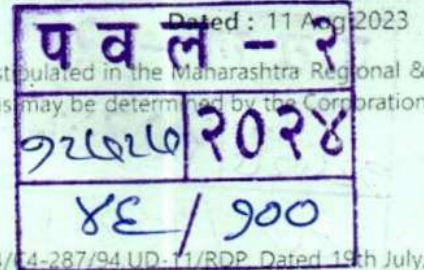 Dated : 11 Aug 2023
प व ल - २
stipulated in the Maharashtra Regional &
as may be determined by the Corporation
२०२४
४६ / १००
/C4-287/94, UD-11/RDP, Dated 19th July,